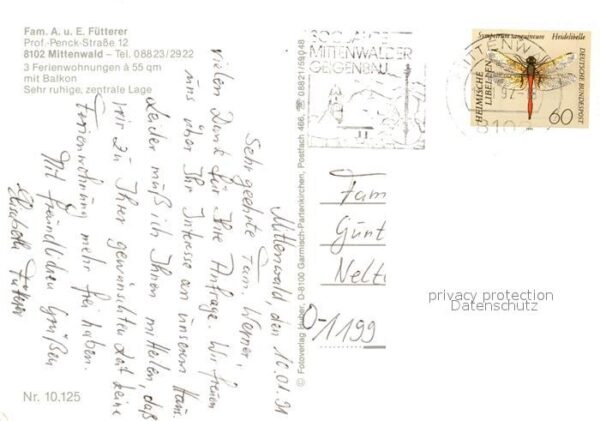 Fam. A. u. E. Fütterer
Prof.-Penck-Straße 12
8102 Mittenwald – Tel. 08823/2922
3 Ferienwohnungen à 55 qm
mit Balkon
Sehr ruhige, zentrale Lage
Mittenwald, den 10.01.91
Sehr geehrte Fam. Werner!
vielen Dank für Ihre Anfrage. Wir freuen
uns über Ihr Interesse an unserem Haus.
Leider muß ich Ihnen mitteilen, daß
wir zu Ihrer gewünschten Zeit keine
Ferienwohnung mehr frei haben.
Mit freundlichen Grüßen
Elisabeth Fütterer
Nr. 10.125
© Fotoverlag Huber, D-8100 Garmisch-Partenkirchen, Postfach 466, ☎ 08821/59048
300 JAHRE
MITTENWALDER
GEIGENBAU
MITTENW
8102
Sympetrum sanguineum Heidelibelle
HEIMISCHE
LIBELLEN
DEUTSCHE BUNDESPOST
60
Fam
Günt
Nelt
O-1199
privacy protection
Datenschutz